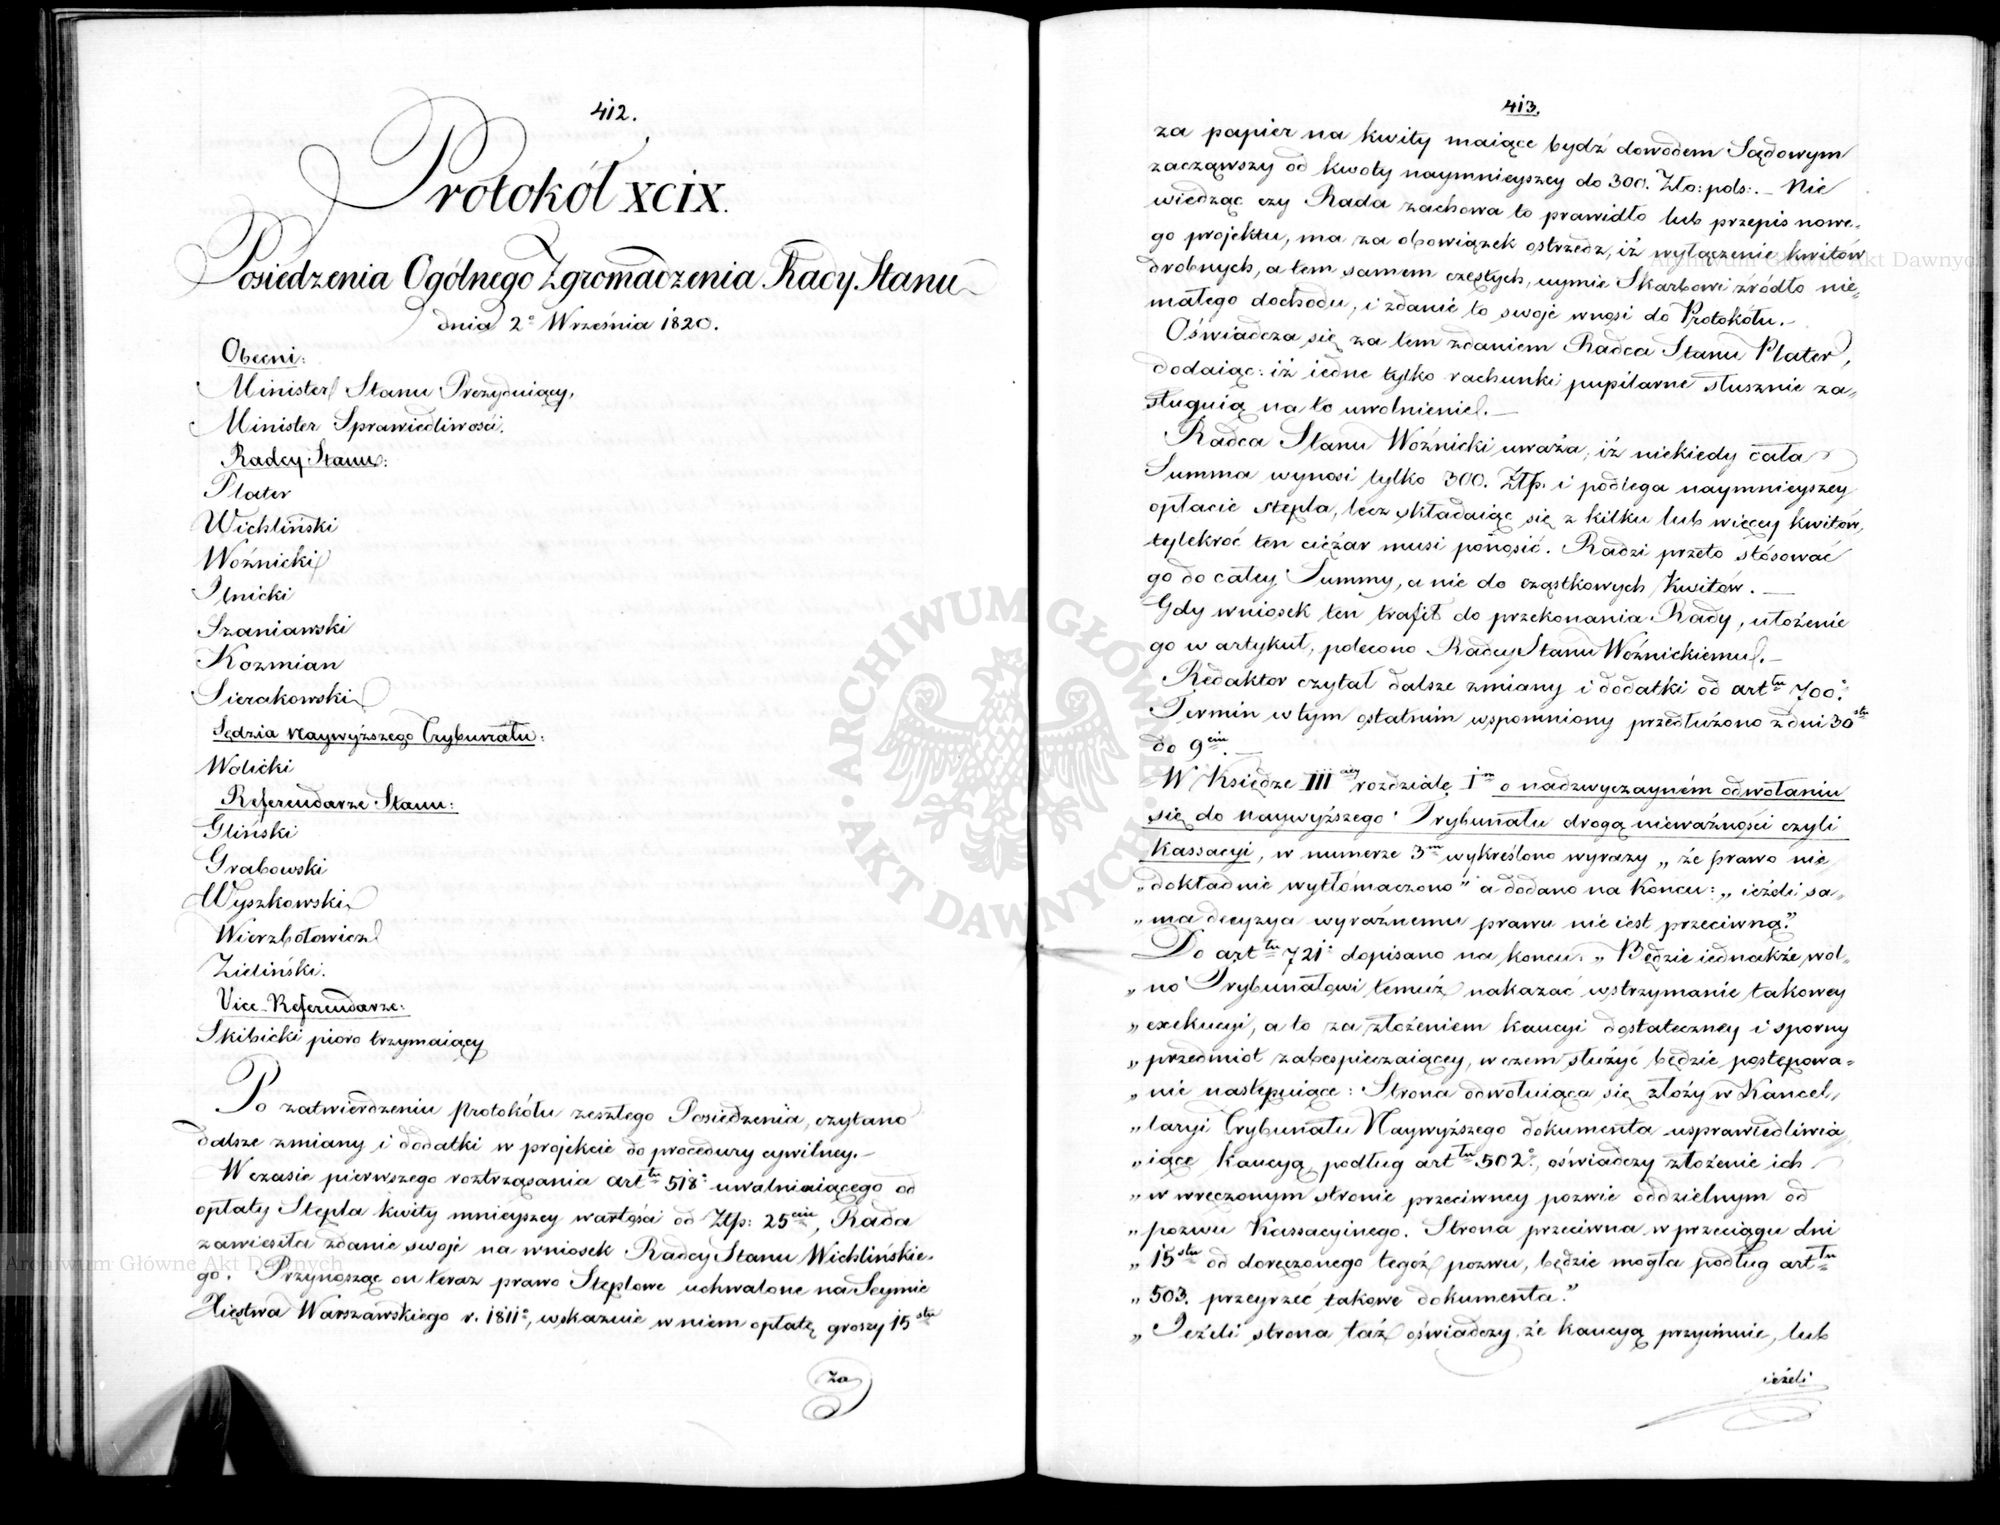 412.
Protokół XCIX.
Posiedzenia Ogólnego Zgromadzenia Rady Stanu
dnia 2º Września 1820.
Obecni:
Minister Stanu Prezyduiący,
Minister Sprawiedliwości.
Radcy Stanu:
Plater
Wichliński
Woźnicki
Ilnicki
Szaniawski
Kozmian
Sierakowski
Sędzia Naywyższego Trybunału:
Wolicki
Referendarze Stanu:
Gliński
Grabowski
Wyszkowski
Wierzbołowicz
Zieliński.
Vice-Referendarze:
Skibicki pioro trzymaiący
Po zatwierdzeniu protokółu zeszłego Posiedzenia, czytano
dalsze zmiany i dodatki w projekcie do procedury cywilney.-
W czasie pierwszego roztrząsania art tu 518º uwalniaiącego od
opłaty Stępla kwity mnieyszey wartości od Złp: 25ciu, Rada
zawiesiła zdanie swoje na wniosek Radcy Stanu Wichlińskie-
go. Przynosząc on teraz prawo Stęplowe uchwalone na Seymie
Xięstwa Warszawskiego r. 1811º, wskazuie w niem opłatę groszy 15stu
za
413.
za papier na kwity maiące bydź dowodem Sądowym
zacząwszy od kwoty naymnieyszey do 300. Zło: pols:.- Nie
wiedząc czy Rada zachowa to prawidło lub przepis nowe-
go projektu, ma za obowiązek ostrzedz, iż wyłączenie kwitów
drobnych, a tem samem częstych, uymie Skarbowi źródło nie-
małego dochodu, i zdanie to swoje wnosi do Protokółu.-
Oświadcza się za tem zdaniem Radca Stanu Plater,
dodaiąc: iż iedne tylko rachunki pupilarne słusznie za-
sługuią na to uwolnienie.-
Radca Stanu Woźnicki uważa, iż niekiedy cała
Summa wynosi tylko 300. Złp. i podlega naymnieyszey
opłacie stępla, lecz składaiąc się z kilku lub więcey kwitów,
tylekroć ten ciężar musi ponosić. Radzi przeto stósować
go do całey Summy, a nie do cząstkowych Kwitów.-
Gdy wniosek ten trafił do przekonania Rady, ułożenie
go w artykuł, polecono Radcy Stanu Woźnickiemu.-
Redaktor czytał dalsze zmiany i dodatki od art tu 700º.
Termin w tym ostatnim wspomniony przedłużono z dni 30stu
do 9ciu.-
W Księdze IIIciey rozdziale Im o nadzwyczayném odwołaniu
się do Naywyższego Trybunału drogą nieważności czyli
Kassacyi, w numerze 3m wykreślono wyrazy „że prawo nie
„dokładnie wytłómaczono” a dodano na końcu: „ieżeli sa-
„ma decyzya wyraźnemu prawu nie iest przeciwną.”
Do art tu 721º dopisano na końcu. „Będzie iednakże wol-
„no Trybunałowi temuż nakazać wstrzymanie takowey
„exekucyi, a to za złożeniem kaucyi dostateczney i sporny
„przedmiot zabespieczaiącey, w czem służyć będzie postępowa-
„nie następuiące: Strona odwołuiąca się złoży w Kancel-
„laryi Trybunału Naywyższego dokumenta usprawiedliwia
„iące kaucyą podług art tu 502º, oświadczy złożenie ich
„w wręczonym stronie przeciwney pozwie oddzielnym od
„pozwu Kassacyinego. Strona przeciwna w przeciągu dni
„15stu od doręczonego tegóż pozwu, będzie mogła podług art tu
„503. przeyrzeć takowe dokumenta.”
„Jeżeli strona taż oświadczy że kaucyą przyimuie, lub
ieżeli
Archiwum Główne Akt Dawnych
Archiwum Główne Akt Dawnych
ARCHIWUM GŁÓWNE · AKT DAWNYCH ·